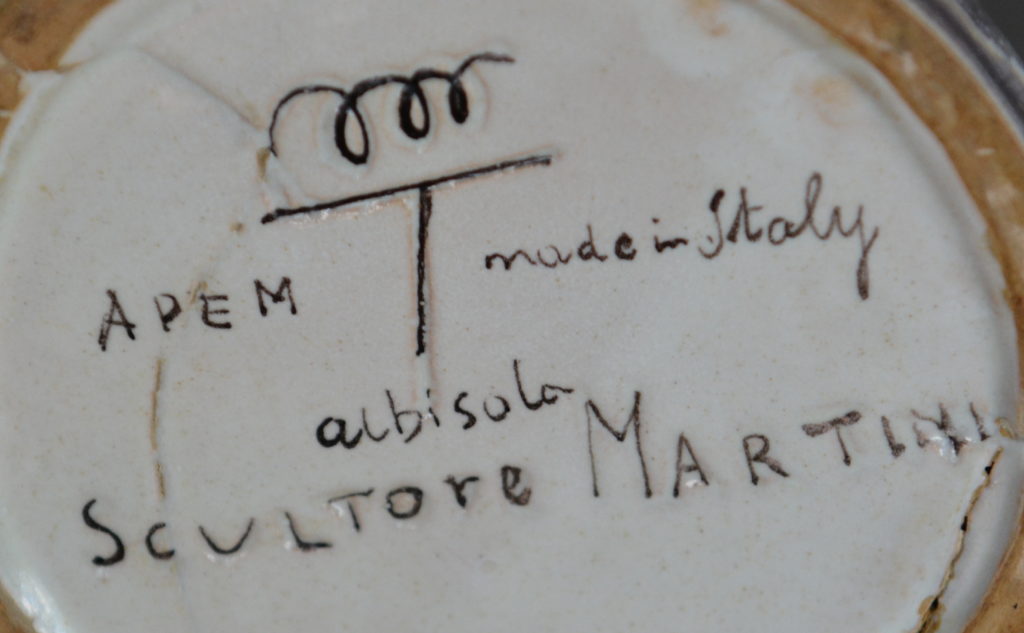 made in Italy
APEM
albisola
SCULTORE MARTINI